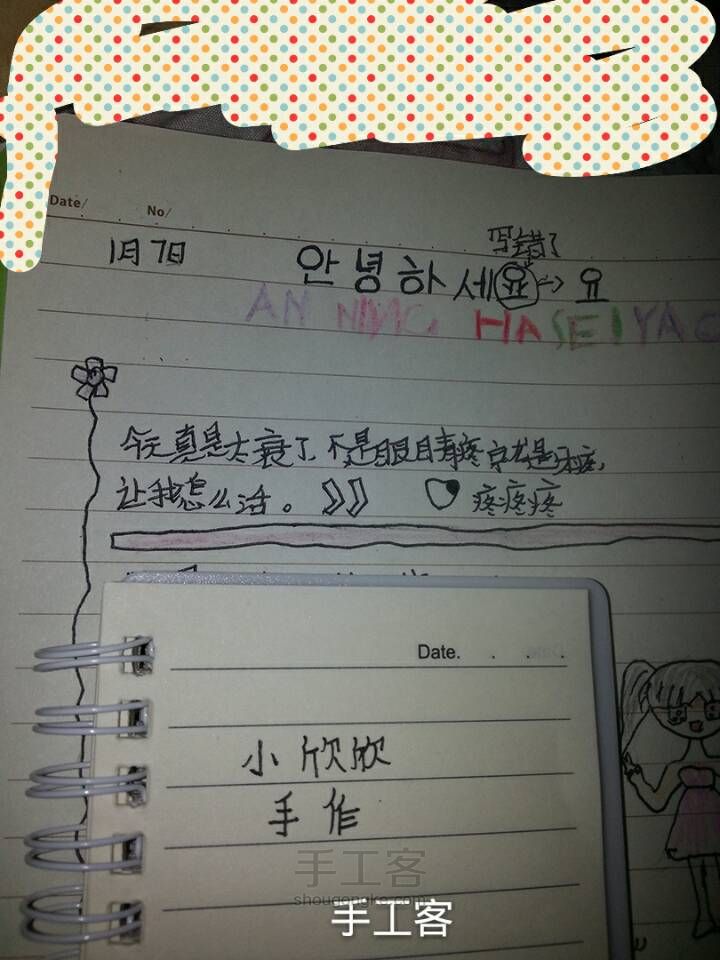 Date/ No/
写错了
1月7日 안녕하세요 -> 요
AN NING HA SEI YAO
今天真是太衰了,不是眼睛疼就是牙疼,
让我怎么活。 疼疼疼
Date.
小欣欣
手作
手工客
shougongke.com
手工客